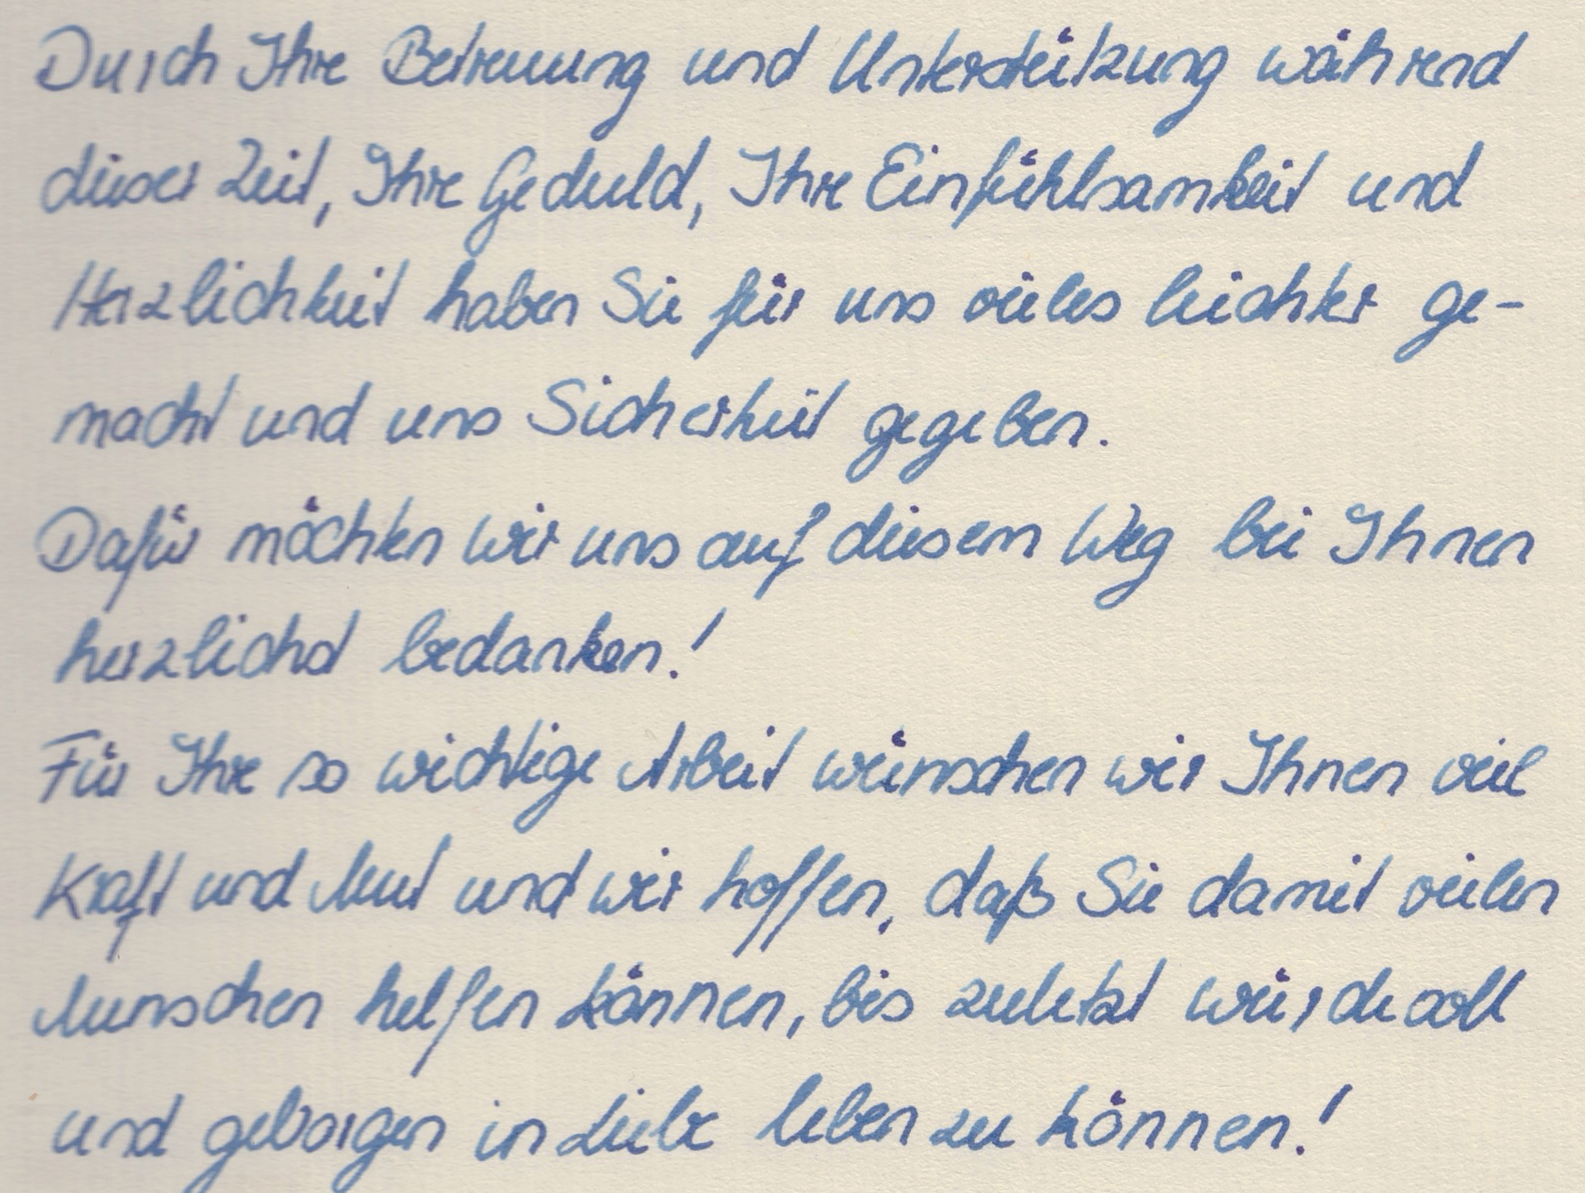 Durch Ihre Betreuung und Unterstützung während
dieser Zeit, Ihre Geduld, Ihre Einfühlsamkeit und
Herzlichkeit haben Sie für uns vieles leichter ge-
macht und uns Sicherheit gegeben.
Dafür möchten wir uns auf diesem Weg bei Ihnen
herzlichst bedanken!
Für Ihre so wichtige Arbeit wünschen wir Ihnen viel
Kraft und Mut und wir hoffen, daß Sie damit vielen
Menschen helfen können, bis zuletzt würdevoll
und geborgen in Liebe leben zu können!